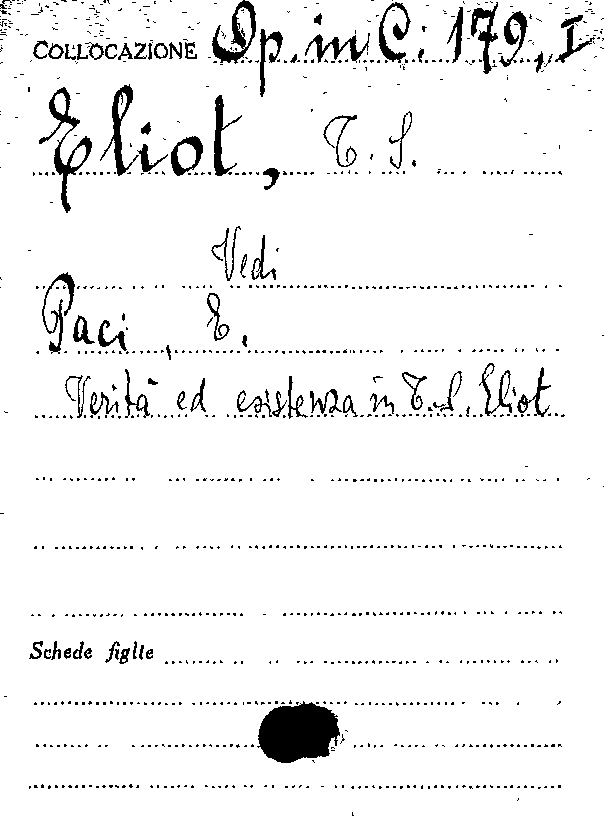 COLLOCAZIONE Op. in C: 179, I
Eliot, T. S.
Vedi
Paci, E.
Verità ed esistenza in T. S. Eliot
Schede figlie